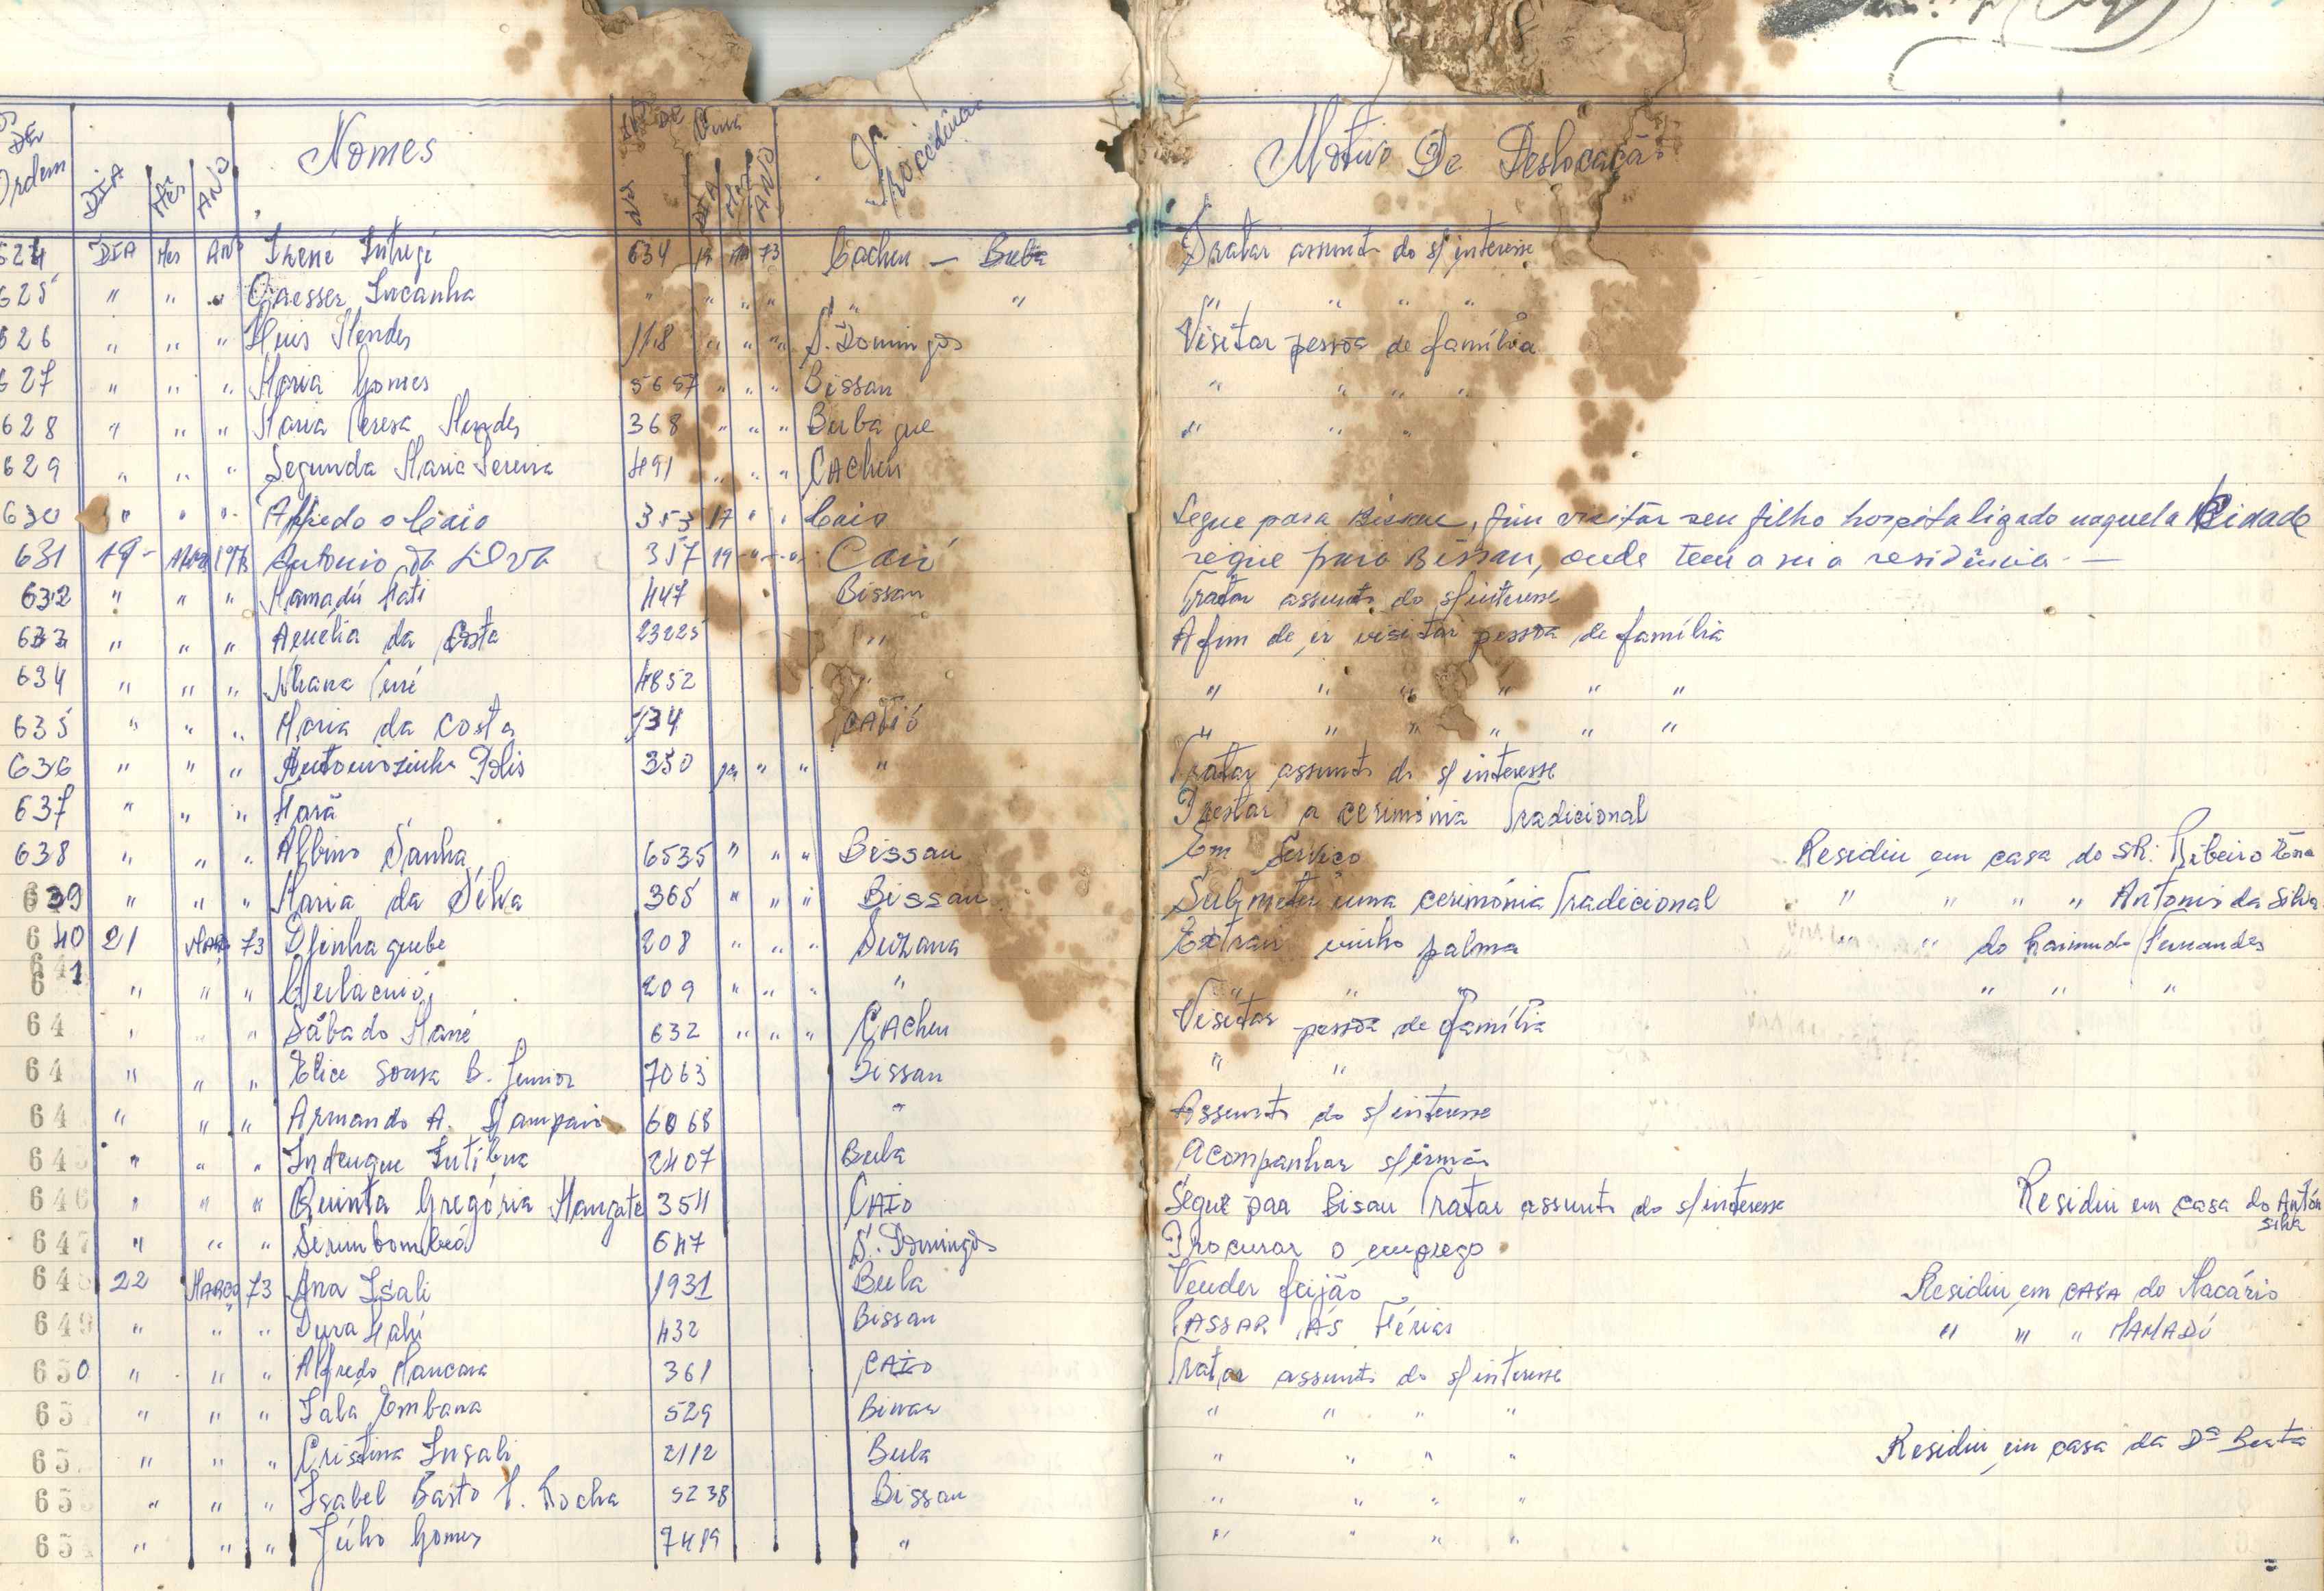 De Ordem DIA Mês ANO Nomes Nº De Guia DIA Mês ANO Procedência Motivo De Deslocação
624 DIA Mes ANO Irené Intregi 634 73 Cacheu — Bula Tratar assunto do s/ interesse
625 " " " Incanha " " " " " " " " " "
626 " " " Mendes 118 " " " S. Domingos Visitar pessoa de família
627 " " " Maria Gomes 5657 " " " Bissau " " " "
628 " " " Maria Teresa Mendes 368 " " " Bubaque " " "
629 " " " Segunda Maria Pereira 491 " " " CACheu
630 " " " Alfredo o Caió 353 17 " " Caió Segue para Bissau, fim visitár seu filho hospitaligado naquela Cidade
631 19 - Mar 1973 Antonio da Silva 357 19 - " - " - Caió segue para Bissau, onde tem a sua residência —
632 " " " Mamadú Sati 447 Bissau Tratar assunto do s/interesse
633 " " " Amélia da Costa 23225 " Afim de ir visitar pessoa de família
634 " " " 4852 " " " " " " "
635 " " " Maria da Costa 734 CATIÓ " " " " " "
636 " " " Antoniozinho 350 " " " Tratar assunto do s/ interesse
637 " " " Prestar a cerimónia Tradicional
638 " " " Albino Sanha 6535 " " " Bissau Em Serviço Residiu em casa do SR. Ribeiro
639 " " " Maria da Silva 365 " " " Bissau Submeter uma cerimónia Tradicional " " " " Antonio da Silva
640 21 MAR 73 Djinhaquebe 208 " " " Suzana Extrair vinho palma " " do Raimundo Fernandes
641 " " " 209 " " " " " " " " " "
64 " " " Sábado Mané 632 " " " CACheu Visitar pessoa de família
64 " " " Elice Sousa B. Junior 7063 Bissau " "
64 " " " Armando A. Sampaio 6068 " Assunto do s/interesse
645 " " " Indeuque Intibua 2407 Bula Acompanhar s/irmão
646 " " " Quinta Gregória 3511 CAIO Segue paa Bisau Tratar assunto do s/interesse Residiu em casa do Antón
silva
647 " " " 647 S. Domingos Procurar o emprego
648 22 MARÇO 73 Ana Isali 1931 Bula Vender feijão Residiu em CASA do Macário
649 " " " 432 Bissau PASSAR AS Férias " " " MAMADÚ
650 " " " Alfredo Mancana 361 CAIO Tratar assunto do s/interesse
65 " " " Embana 529 Binar " " " "
65 " " " Cristina Insali 2112 Bula " " " " Residiu em casa da Dª Beata
65 " " " Isabel Basto T. Rocha 5238 Bissau " " " "
65 " " " Júlio Gomes 7419 " " " " "